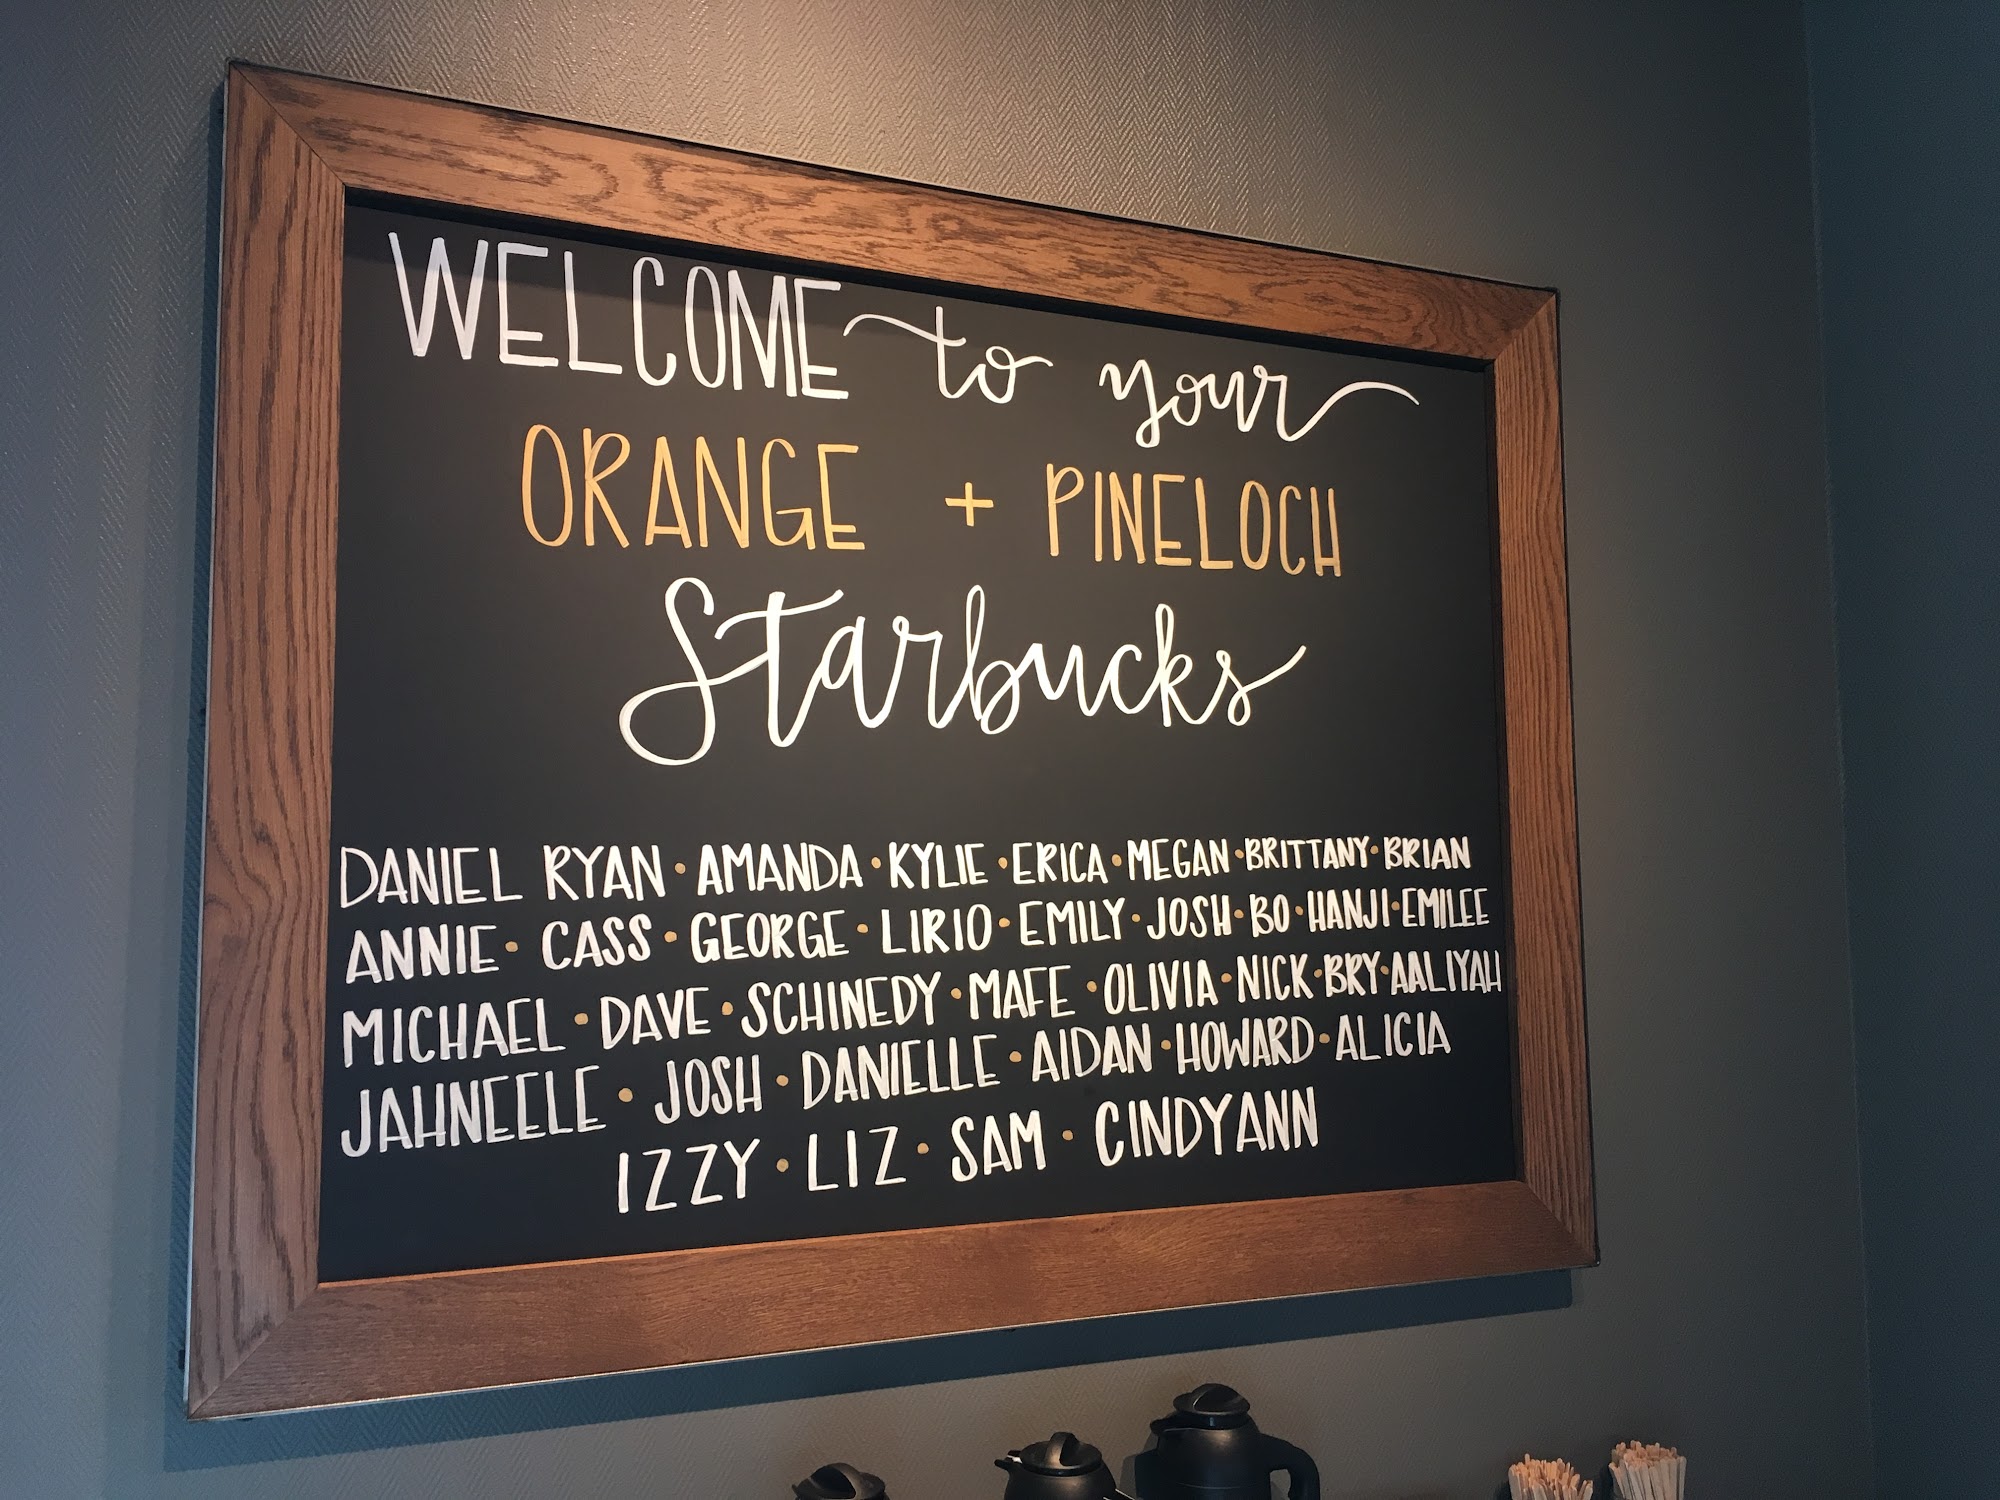 WELCOME to your
ORANGE + PINELOCH
Starbucks
DANIEL RYAN · AMANDA · KYLIE · ERICA · MEGAN · BRITTANY · BRIAN
ANNIE · CASS · GEORGE · LIRIO · EMILY · JOSH · BO · HANJI · EMILEE
MICHAEL · DAVE · SCHINEDY · MAFE · OLIVIA · NICK · BRY · AALIYAH
JAHNEELE · JOSH · DANIELLE · AIDAN · HOWARD · ALICIA
IZZY · LIZ · SAM · CINDYANN